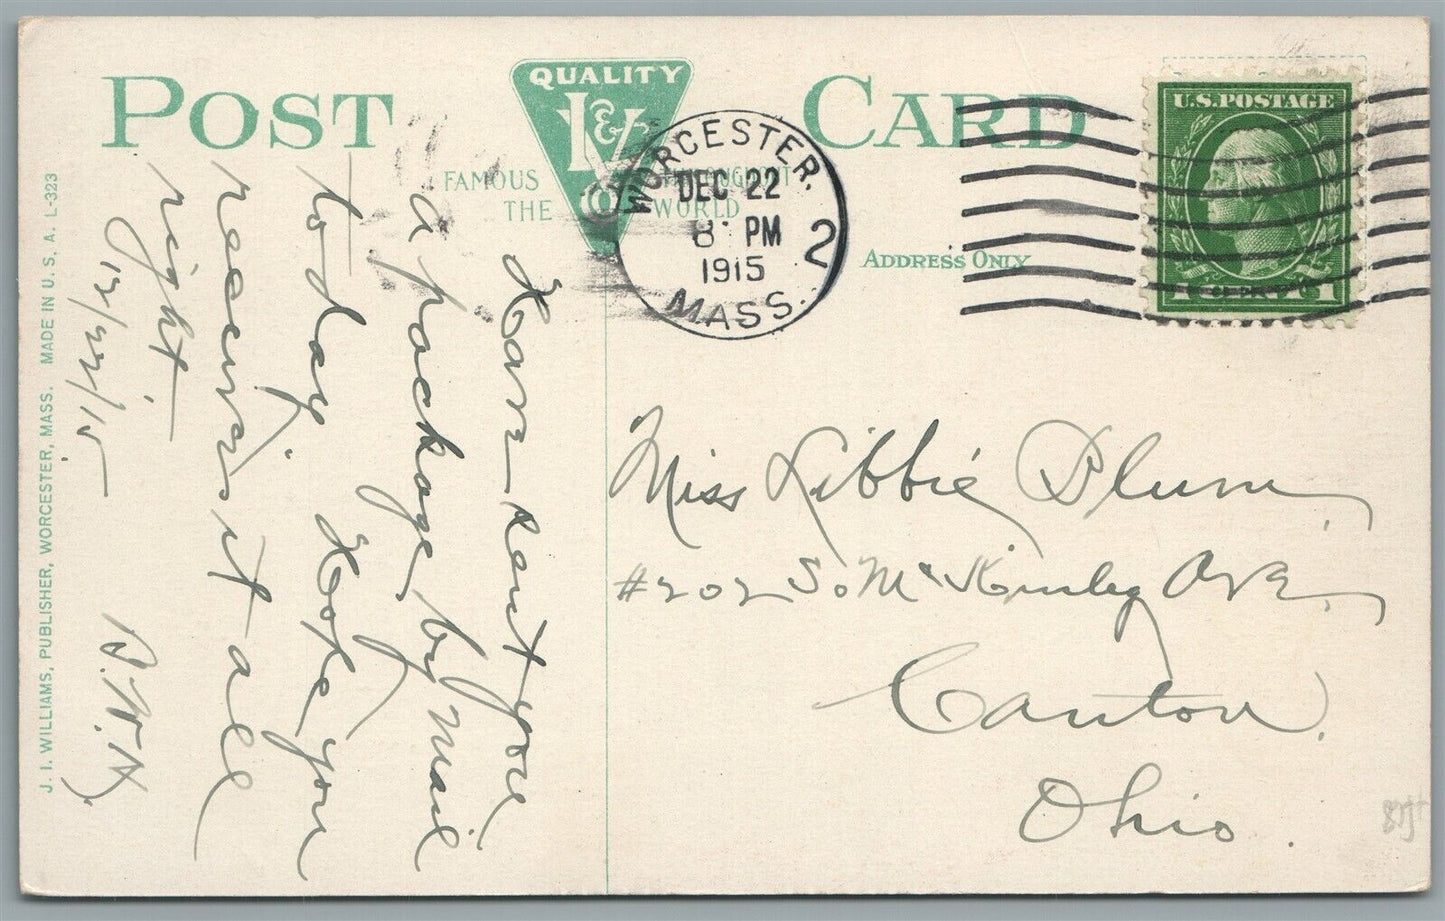 POST CARD
QUALITY
I&V
FAMOUS THROUGHOUT
THE WORLD
WORCESTER, MASS.
DEC 22
8 PM
1915
2
U.S. POSTAGE
1 1
ADDRESS ONLY
J. I. WILLIAMS, PUBLISHER, WORCESTER, MASS. MADE IN U. S. A. L-323
Have sent you
a package by mail
to day. Hope you
receives it all
right.
12/22/15
Miss Libbie Blum,
#202 So Mc Kinley Ave.
Canton.
Ohio.